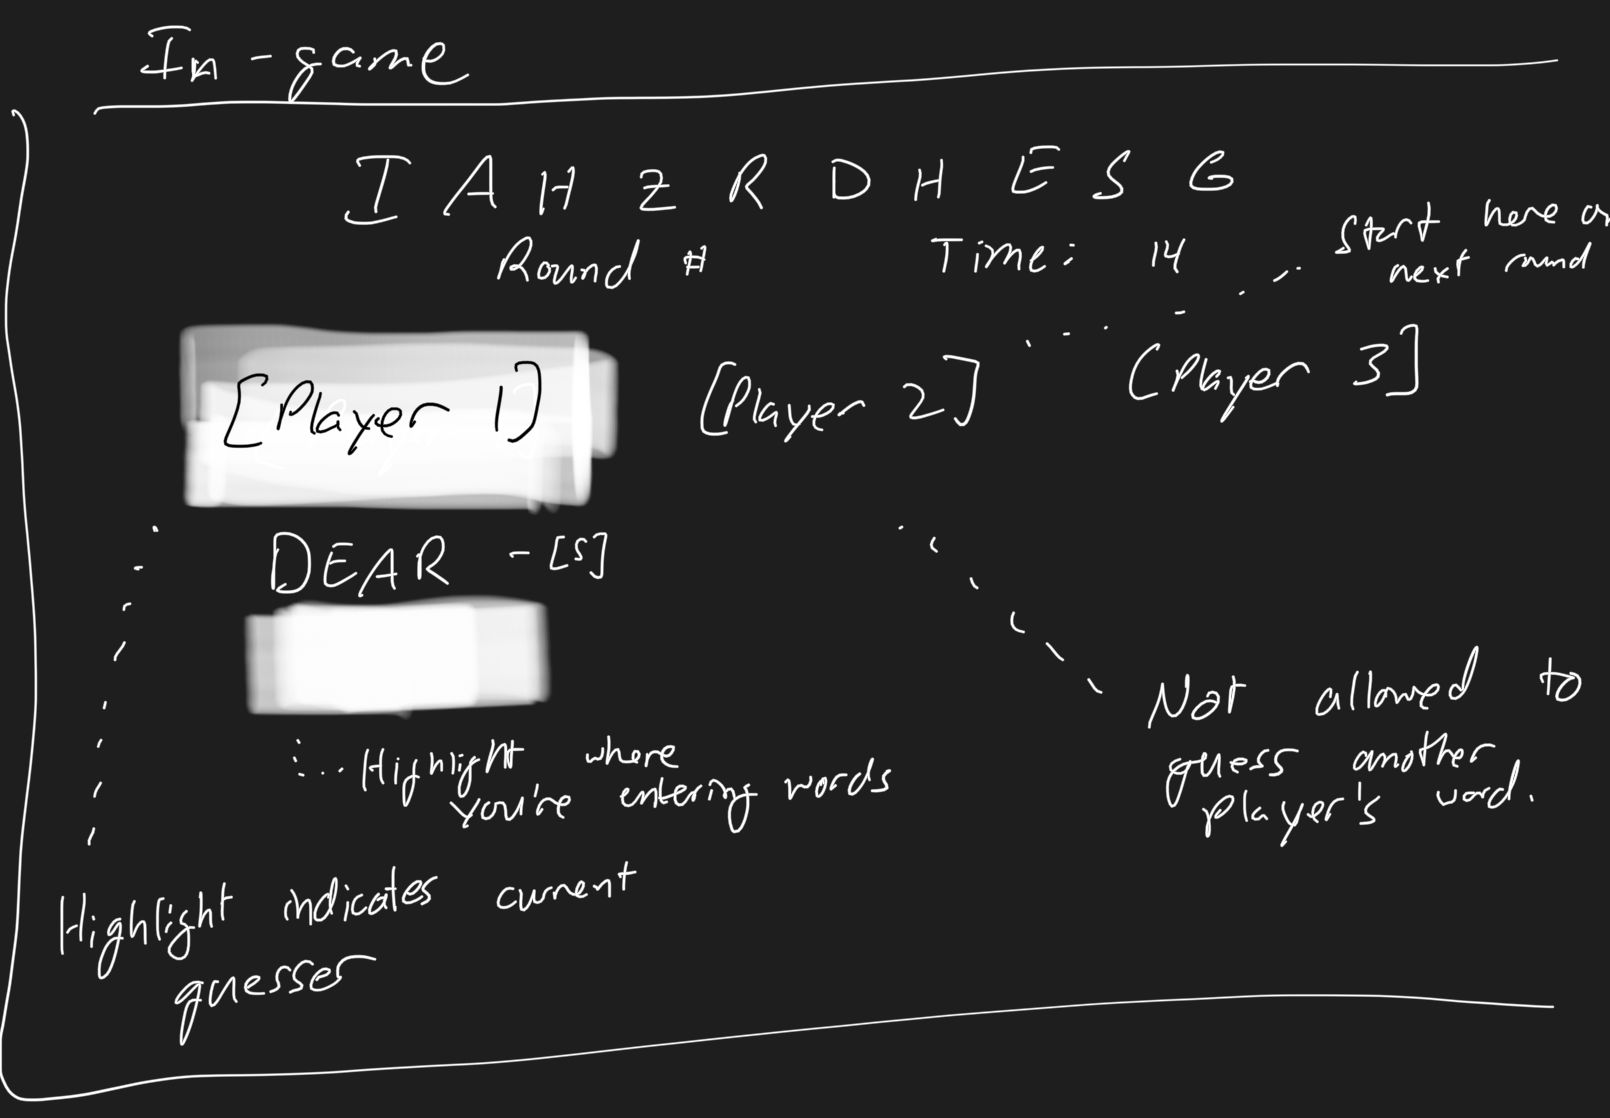 In-game
I A H Z R D H E S G
Round #
Time: 14
Start here on
next round
[Player 1]
[Player 2]
[Player 3]
DEAR - [5]
Highlight where
you're entering words
Not allowed to
guess another
player's word.
Highlight indicates current
guesser